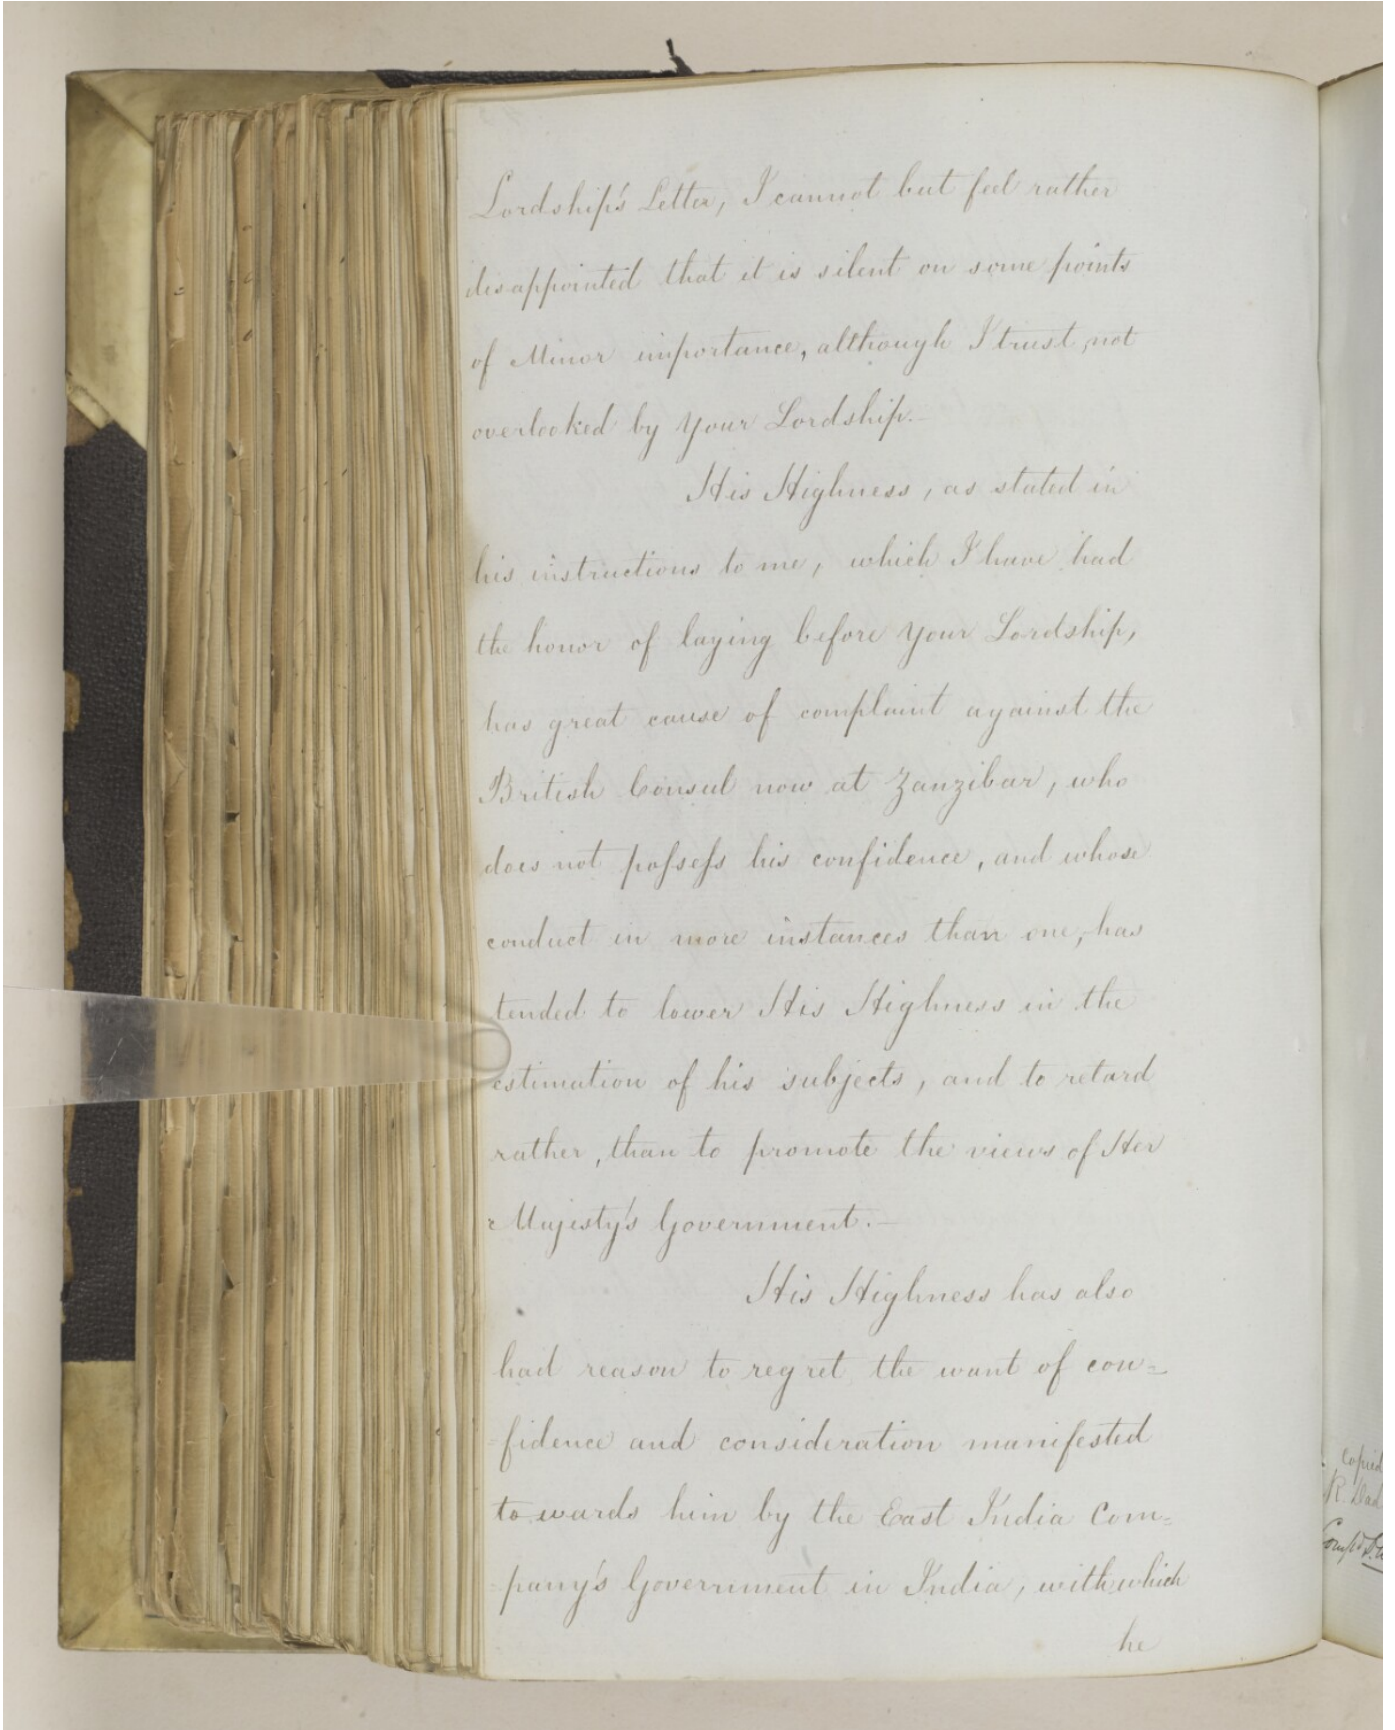 Lordship's Letter, I cannot but feel rather
disappointed that it is silent on some points
of Minor importance, although I trust, not
overlooked by Your Lordship.—
His Highness, as stated in
his instructions to me, which I have had
the honor of laying before Your Lordship,
has great cause of complaint against the
British Consul now at Zanzibar, who
does not possess his confidence, and whose
conduct in more instances than one, has
tended to lower His Highness in the
estimation of his subjects, and to retard
rather, than to promote the views of Her
Majesty's Government.—
His Highness has also
had reason to regret the want of con=
=fidence and consideration manifested
towards him by the East India Com=
=pany's Government in India, with which
he
copied
R.